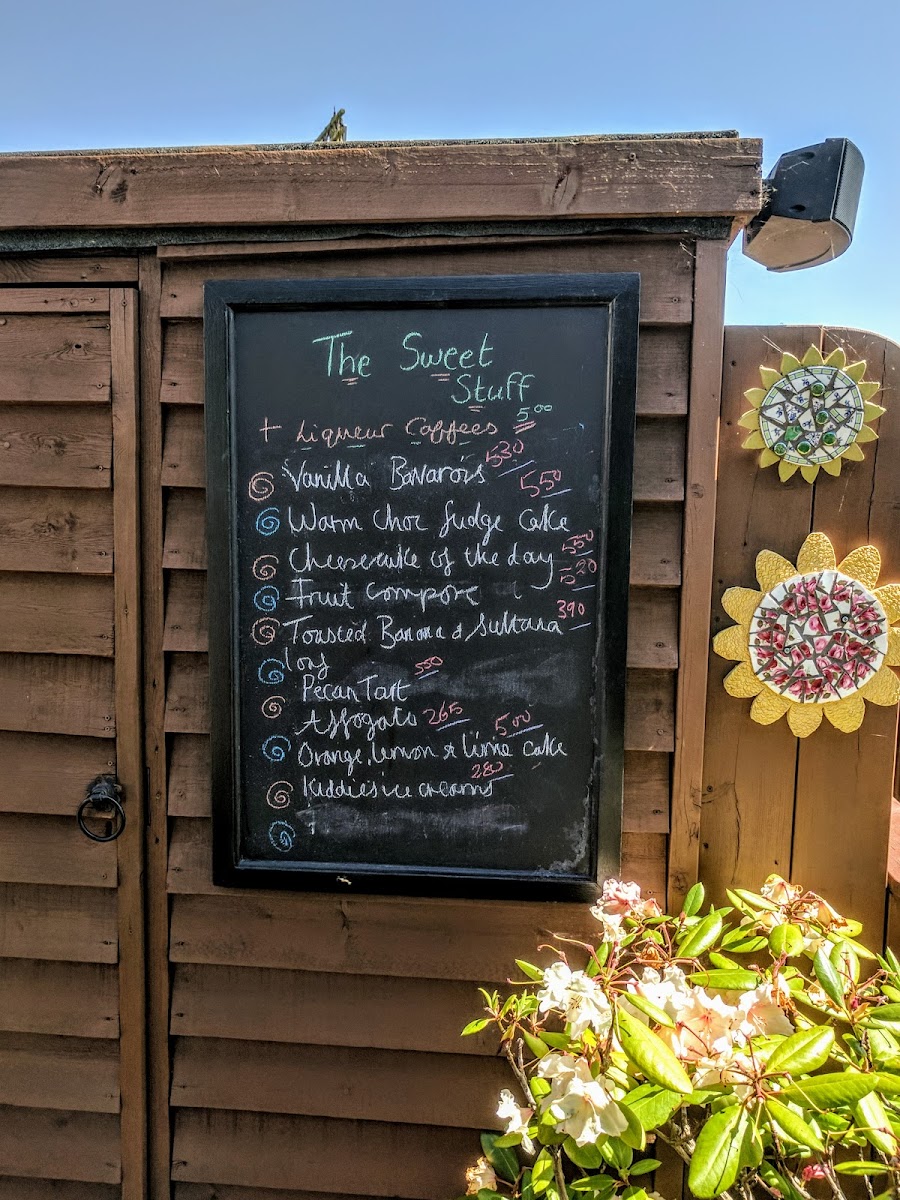 The Sweet
Stuff
+ Liqueur Coffees 5.00
Vanilla Bavarois 530
550
Warm Choc fudge cake
Cheesecake of the day 550
Fruit Compore 520
Toasted Banana & Sultana 390
loaf
Pecan Tart 550
Affogato 265
500
Orange, lemon & lime cake
280
Kiddies ice creams